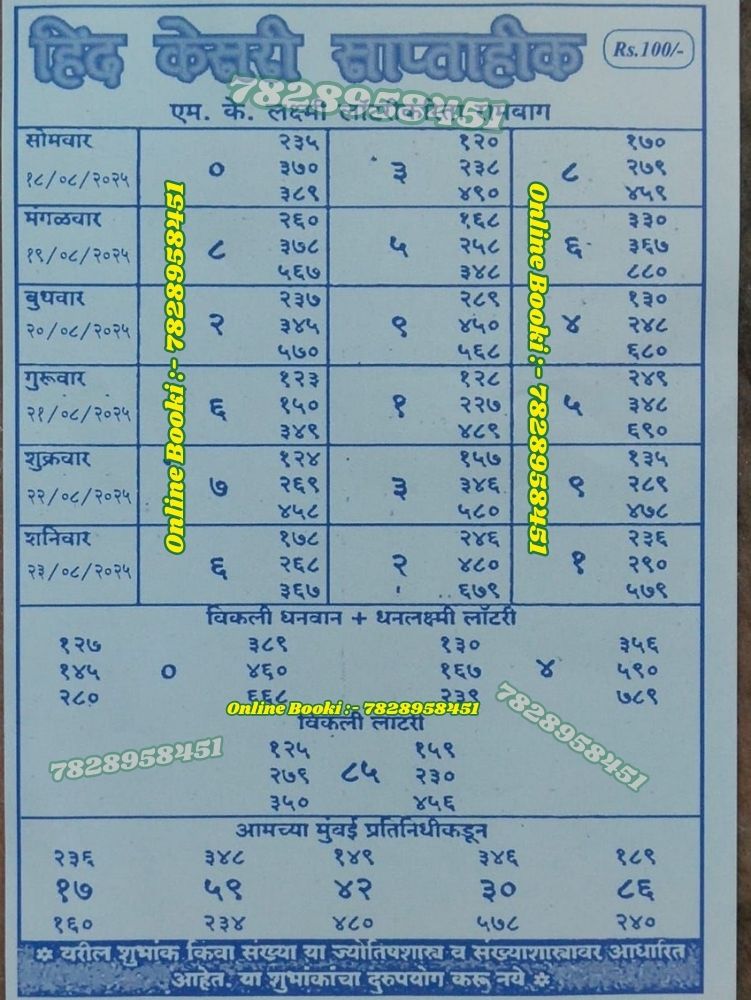 हिंद केसरी साप्ताहीक Rs.100/-
7828958451
एम. के. लक्ष्मी रामबाग
सोमवार २३५ १२० १७०
१८/०८/२०२५ ० ३७० ३ २३८ ८ २७९
३८९ ४९० ४५९
मंगळवार २६० १६८ ३३०
१९/०८/२०२५ ८ ३७८ ५ २५८ ६ ३६७
५६७ ३४८ ८८०
बुधवार २३७ २८९ १३०
२०/०८/२०२५ २ ३४५ ९ ४५० ४ २४८
५७० ५६८ ६८०
गुरूवार १२३ १२८ २४९
२१/०८/२०२५ ६ १५० १ २२७ ५ ३४८
३४९ ४८९ ६९०
शुक्रवार १२४ १५७ १३५
२२/०८/२०२५ ७ २६९ ३ ३४६ ९ २८९
४५८ ५८० ४७८
शनिवार १७८ २४६ २३६
२३/०८/२०२५ ६ २६८ २ ४८० १ २९०
३६७ ६७९ ५७९
Online Booki :- 7828958451
Online Booki :- 7828958451
विकली धनवान + धनलक्ष्मी लॉटरी
१२७ ३८९ १३० ३५६
१४५ ० ४६० १६७ ४ ५९०
२८० ६६८ २३९ ७८९
Online Booki :- 7828958451
7828958451
विकली लॉटरी
7828958451
१२५ १५९
२७९ ८५ २३०
३५० ४५६
आमच्या मुंबई प्रतिनिधीकडून
२३६ ३४८ १४९ ३४६ १८९
१७ ५९ ४२ ३० ८६
१६० २३४ ४८० ५७८ २४०
वरील शुभांक किंवा संख्या या ज्योतिषशास्त्र व संख्याशास्त्रावर आधारित
आहेत. या शुभांकांचा दुरुपयोग करू नये